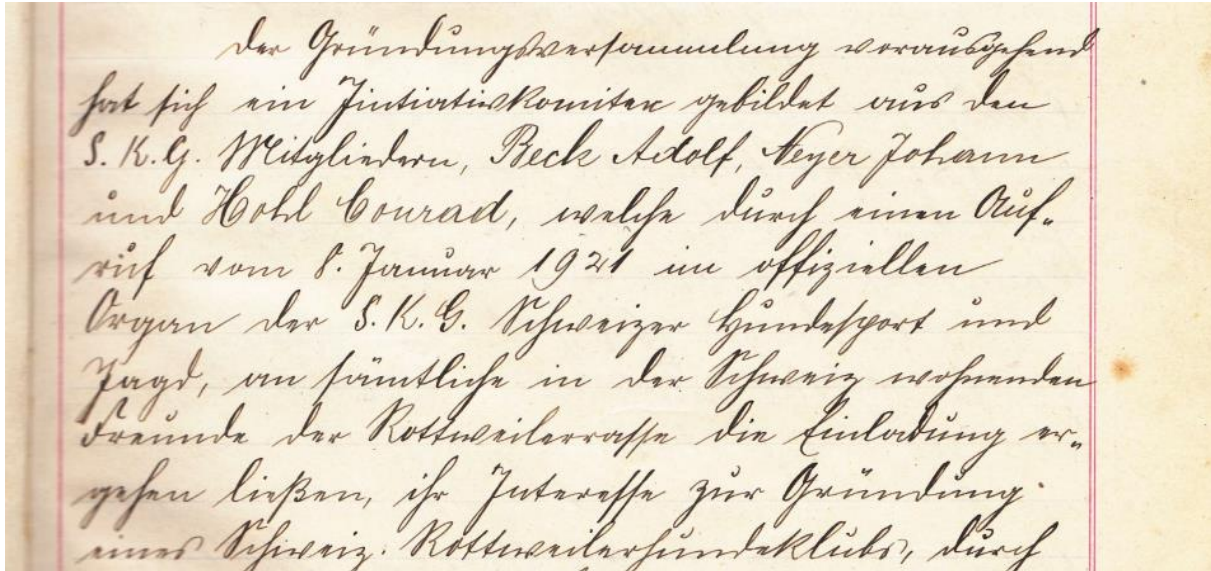 Der Gründungsversammlung vorausgehend
hat sich ein Jintiativkomitee gebildet aus den
S. K. G. Mitgliedern, Beck Adolf, Neyer Johann
und Hohl Conrad, welche durch einen Auf-
ruf vom 8. Januar 1921 im offiziellen
Organ der S. K. G. Schweizer Hundesport und
Jagd, an sämtliche in der Schweiz wohnenden
Freunde der Rottweilerrasse die Einladung er-
gehen ließen, ihr Interesse zur Gründung
eines Schweiz. Rottweilerhundeklubs, durch